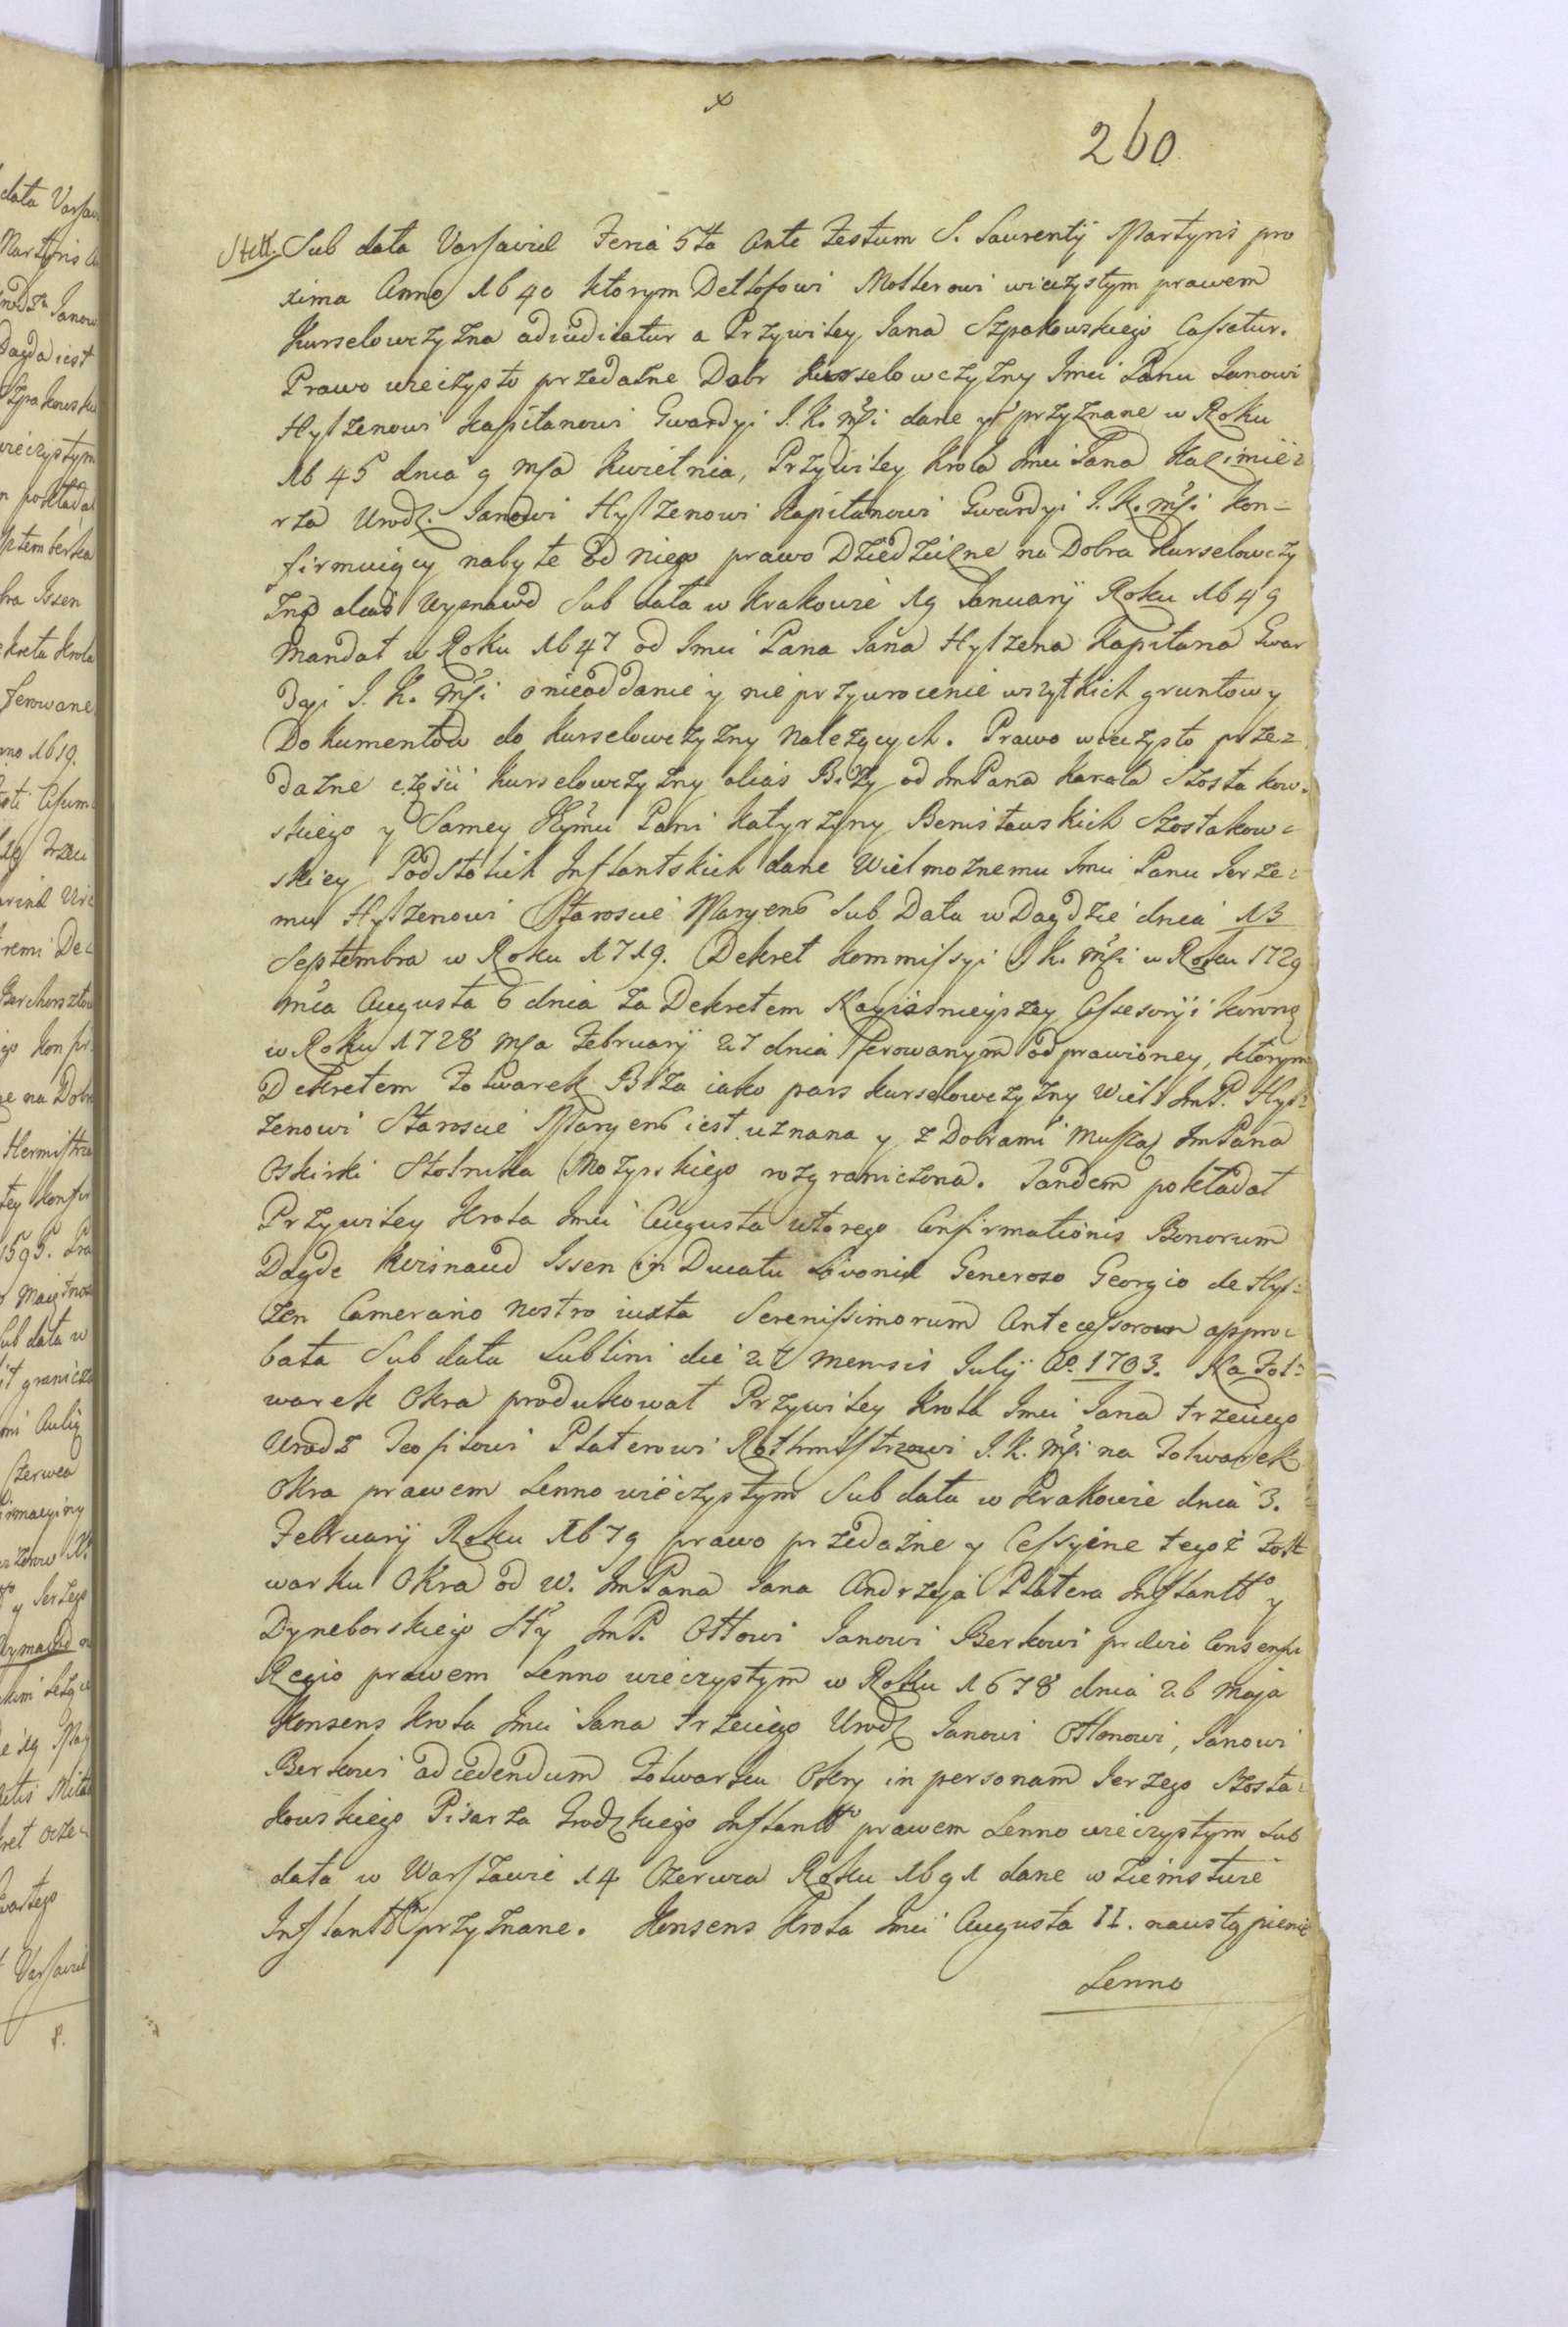 x
260
Sub data Varsaviæ Feria 5ta Ante Festum S. Laurentij Martyris pro
xima Anno 1640 ktorym Detlofowi Mollerowi wieczystym prawem
Kurselowczyzna adiudicatur a Przywiley Jana Szpakowskiego Cassatur.
Prawo wieczysto przedażne Dobr Kurselowczyzny Jmci Panu Janowi
Hylzenowi Kapitanowi Gwardyi J. K. Mści dane y przyznane w Roku
1645 dnia 9 Msca Kwietnia, Przywiley Krola Jmci Jana Kazimie=
rza Urodz. Janowi Hylzenowi Kapitanowi Gwardyi J. K. Mści kon=
firmuiący nabyte od niego prawo Dziedziczne na Dobra Kurselowczy
znę alias Uysnawd Sub data w Krakowie 19 Januarij Roku 1649
Mandat w Roku 1647 od Jmci Pana Jana Hylzena Kapitana Gwar
dyi J. K. Mści o nieoddanie y nie przywrocenie wszytkich gruntow y
Dokumentow do Kurselowczyzny należących. Prawo wieczysto prze=
dażne części Kurselowczyzny alias Biży od JmPana Karola Szostakow=
skiego y Samey Jeymci Pani Katyrzyny Benisławskich Szostakow=
skiey Podstolich Inflantskich dane Wielmożnemu Jmci Panu Jerze=
mu Hylzenowi Staroscie Maryenb Sub Data w Dagdzie dnia 13
Septembra w Roku 1719. Dekret Kommissyi J K. Mści w Roku 1729
Msca Augusta 6 dnia za Dekretem Nayiasnieyszey Assesoryi Koronę
w Roku 1728 Msca Februarij 27 dnia ferowanym odprawioney, ktorym
Dekretem Folwarek Biża iako pars Kurselowczyzny Wiel. JmP. Hyl=
zenowi Staroscie Maryenb iest uznana y z Dobrami Muszą JmPana
Oskirki Stolnika Mozyrskiego rozgraniczona. Tandem pokładał
Przywiley Krola Jmci Augusta wtorego Confirmationis Bonorum
Dagde Kweisnaud Issen in Ducatu Livoniæ Generoso Georgio de Hyl=
zen Camerario nostro iuxta Serenissimorum Antecessorum appro=
bata Sub data Lublini die 27 mensis Julij Ao. 1703. Na Fol=
warek Okra produkował Przywiley Krola Jmci Jana trzeciego
Urodz Teofilowi Platerowi Rothmistrzowi J. K. Mści na Folwarek
Okra prawem Lenno wieczystym Sub data w Krakowie dnia 3.
Februarij Roku 1679 prawo przedażne y Cessyine tegoż Foll
warku Okra od W. JmPana Jana Andrzeja Platera Inflantto y
Dyneborskiego Sty JmP. Ottowi Janowi Berkowi prævio Consensu
Regio prawem Lenno wieczystym w Roku 1678 dnia 26 Maja
Konsens Krola Jmci Jana trzeciego Urodz Janowi Ottonowi, Janowi
Berkowi ad cedendum Folwarku Okry in personam Jerzego Szosta=
kowskiego Pisarza Grodzkiego Inflantto prawem Lenno wieczystym Sub
data w Warszawie 14 Czerwca Roku 1691 dane w Ziemstwie
Inflantt przyznane. Konsens Krola Jmci Augusta II. na ustąpienie
Lenno